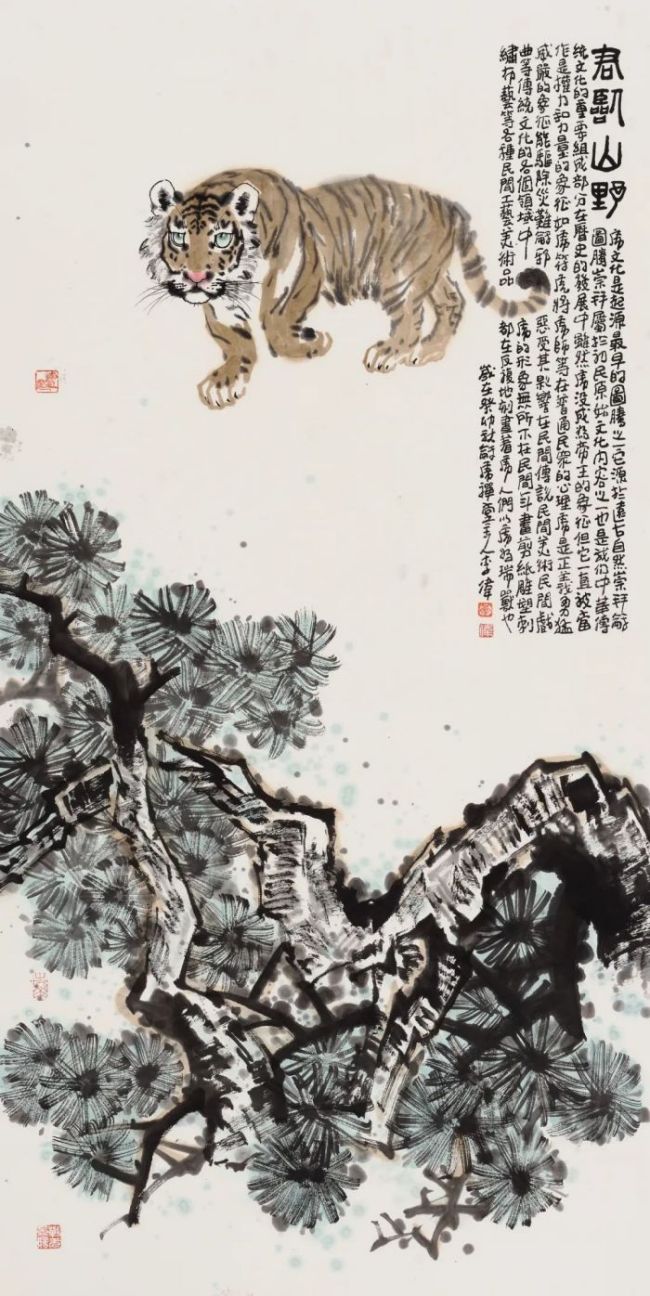 君臨山野
虎文化是起源最早的圖騰之一它源於遠古自然崇拜和
圖騰崇拜屬於初民原始文化內容之一也是我們中華傳
統文化的重要組成部分在曆史的發展中雖然虎沒成為帝王的象征但它一直被當
作是權力和力量的象征如虎符虎將虎師等在普通民眾的心理虎是正義勇猛
威嚴的象征能驅除災難辟邪惡受其影響在民間傳說民間美術民間戲
曲等傳統文化的各個領域中虎的形象無所不在民間年畫剪紙雕塑刺
繡布藝等各種民間工藝美術品都在反複地刻畫著虎人們以虎為瑞獸也
歲在癸卯秋虎禪堂主人李偉